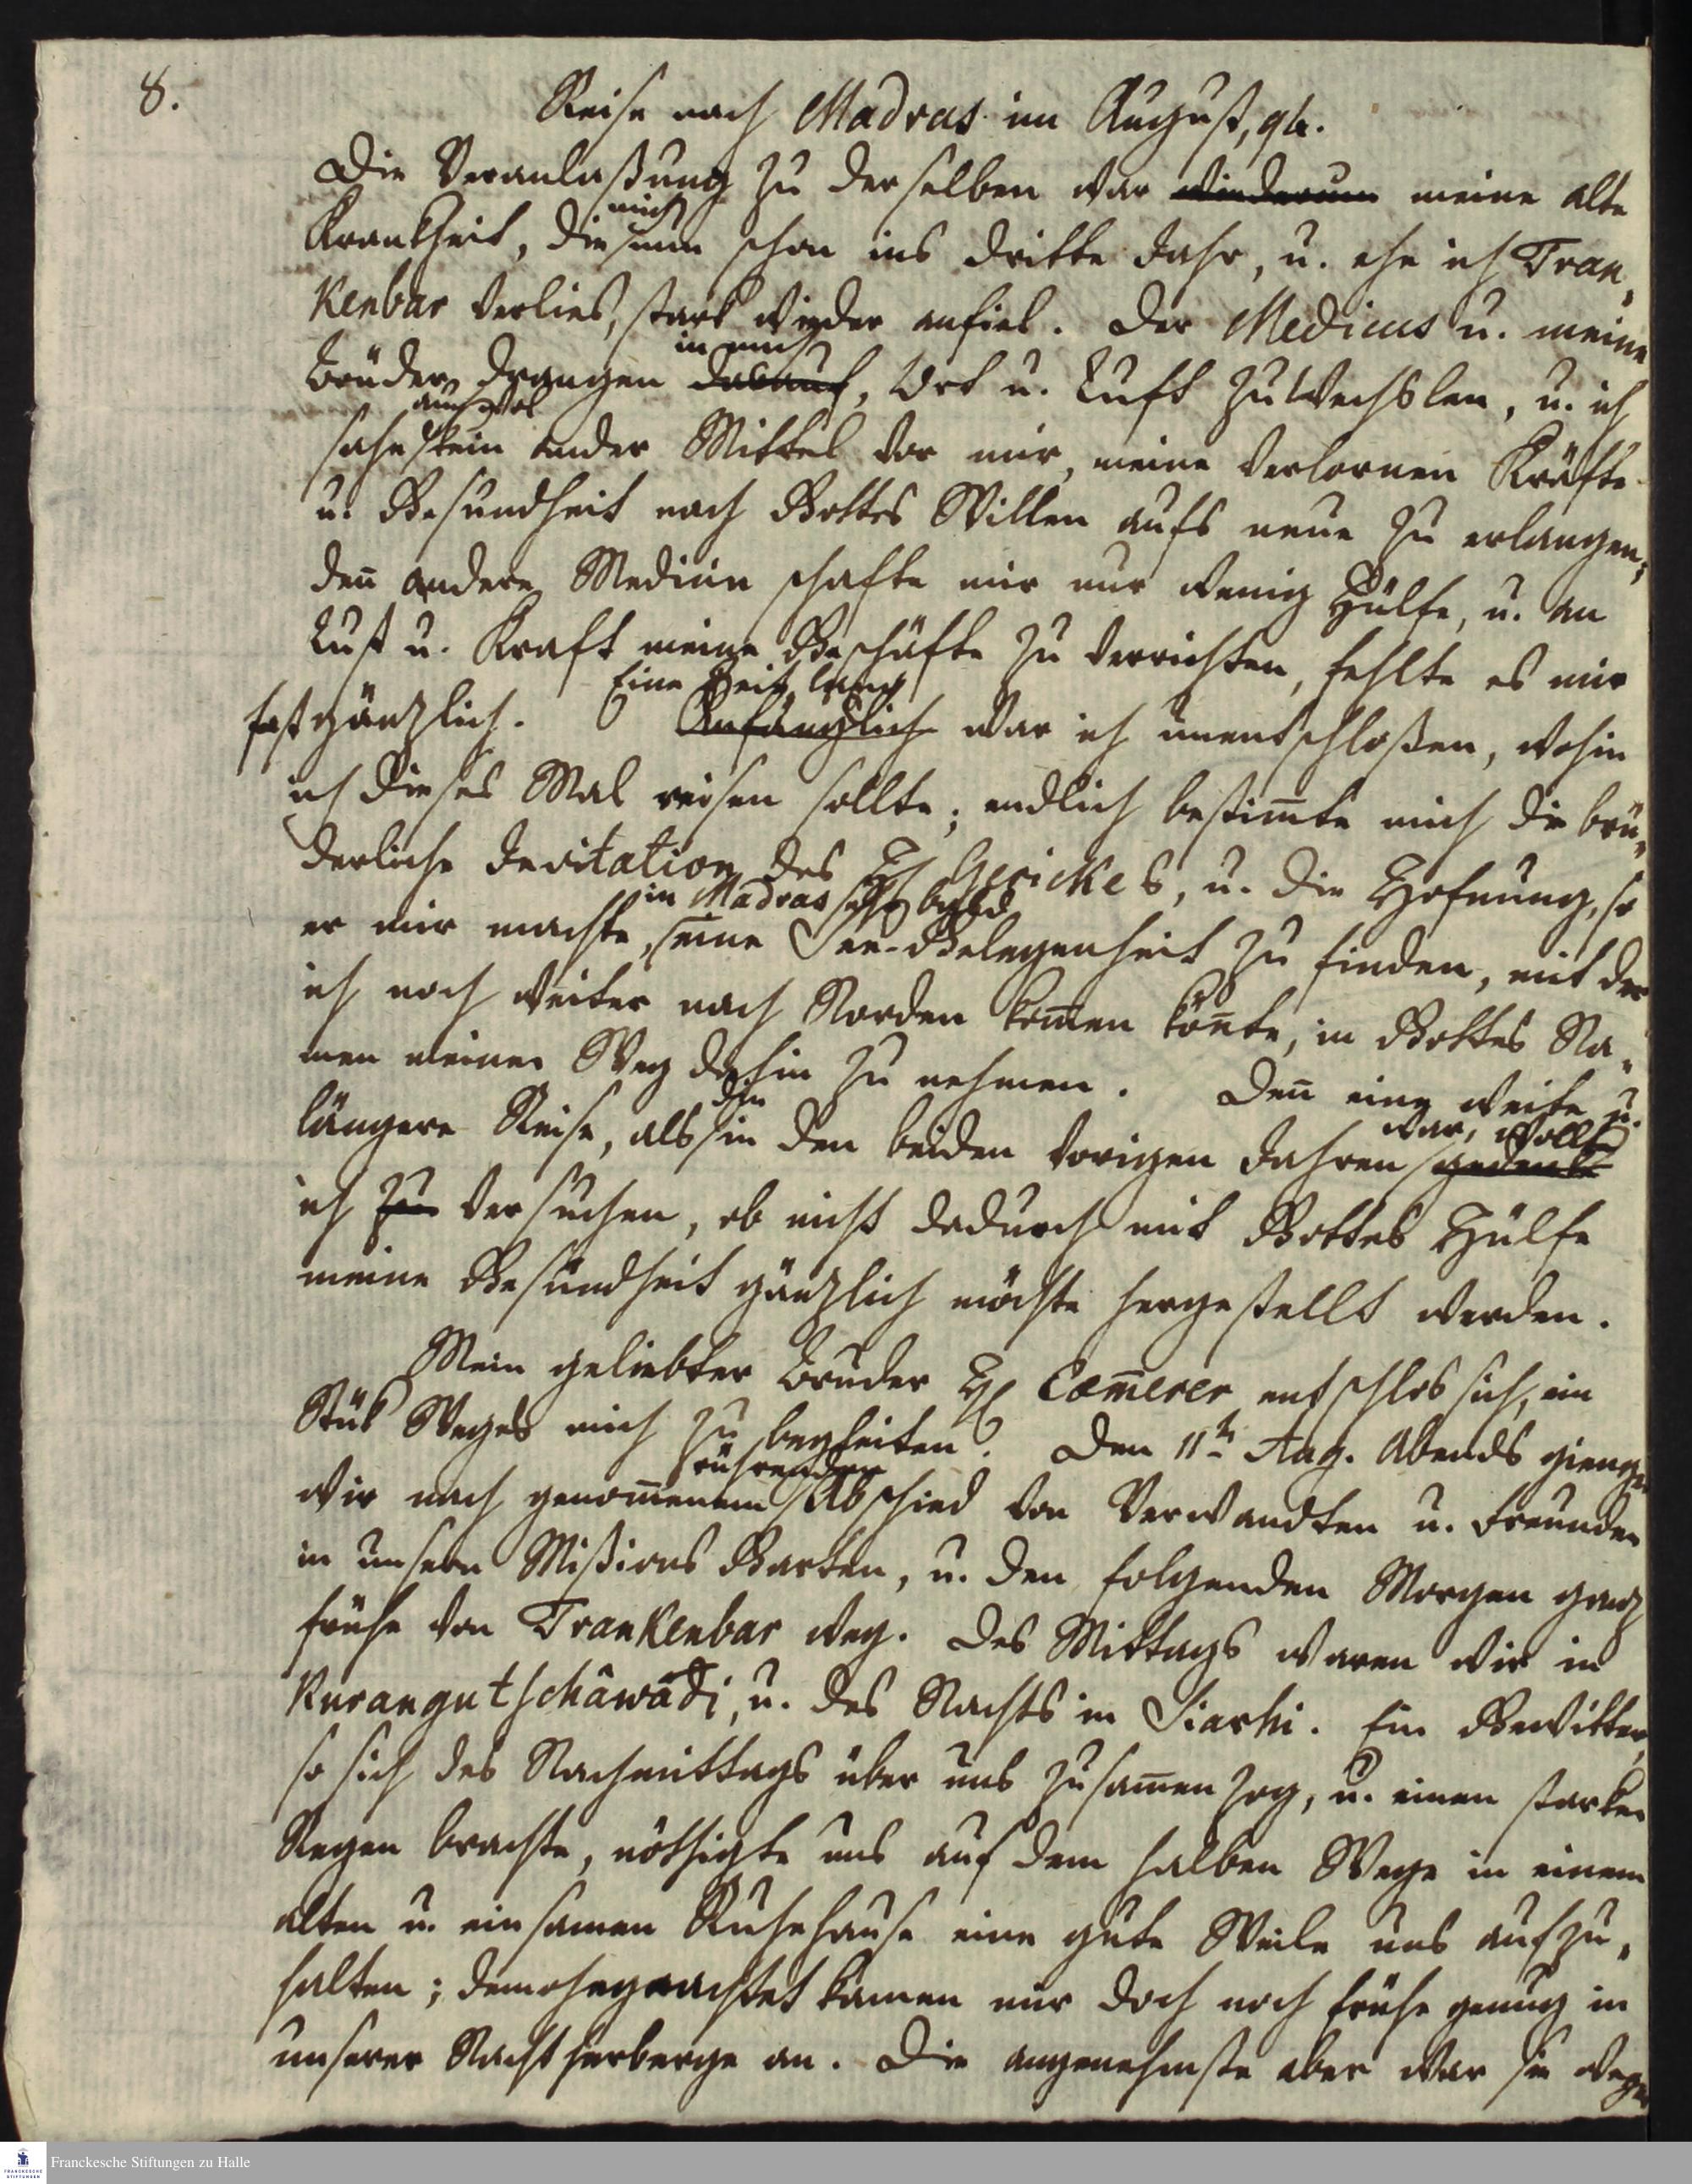 8.
Reise nach Madras im August, 94.
Die Veranlaßung zu derselben war wiederum meine alte
mich
Krankheit, die nun schon ins dritte Jahr, u. ehe ich Tran„
kenbar verlies, stark wieder anfiel. Der Medicus u. meine
in mich
Brüder drangen darauf, Ort u. Luft zu wechslen, u. ich
auch
sahe kein ander Mittel vor mir, meine verlornen Kräfte
u. Gesundheit nach Gottes Willen aufs neue zu erlangen;
deñ andere Medicin schafte mir nur wenig Hülfe, u. an
Lust u. Kraft meine Geschäfte zu verrichten, fehlte es mir
Eine Zeit lang
fast gänzlich. Anfänglich war ich unentschloßen, wohin
ich dieses Mal reisen sollte; endlich bestim̄te mich die brü„
derliche Invitation des H Gerickes, u. die Hofnung, so
in Madras sehr bald
er mir machte, eine See-Gelegenheit zu finden, mit der
ich noch weiter nach Norden kom̄en köñte, in Gottes Na„
men meinen Weg dahin zu nehmen. Deñ eine weite u.
die
längere Reise, als in den beiden vorigen Jahren gedenke
war, wollte
ich zu versuchen, ob nicht dadurch mit Gottes Hülfe
meine Gesundheit gänzlich möchte hergestellt werden.
Mein geliebter Bruder H Cam̄erer entschlos sich, ein
Stük Weges mich zu begleiten. Den 11t Aug. Abends giengen
rührenden
wir nach genom̄enem Abschied von Verwandten u. Freunden
in unsern Mißions Garten, u. den folgenden Morgen ganz
frühe von Trankenbar weg. Des Mittags waren wir in
Kurangutschâwâdi, u. des Nachts in Siarhi. Ein Gewitter,
so sich des Nachmittags über uns zusam̄en zog, u. einen starken
Regen brachte, nöthigte uns auf dem halben Wege in einem
alten u. einsamen Ruhehause eine gute Weile uns aufzu„
halten; demohngeachtet kamen wir doch noch frühe genug in
unserer Nachtherberge an. Die angenehmste aber war sie wegen
Franckesche Stiftungen zu Halle